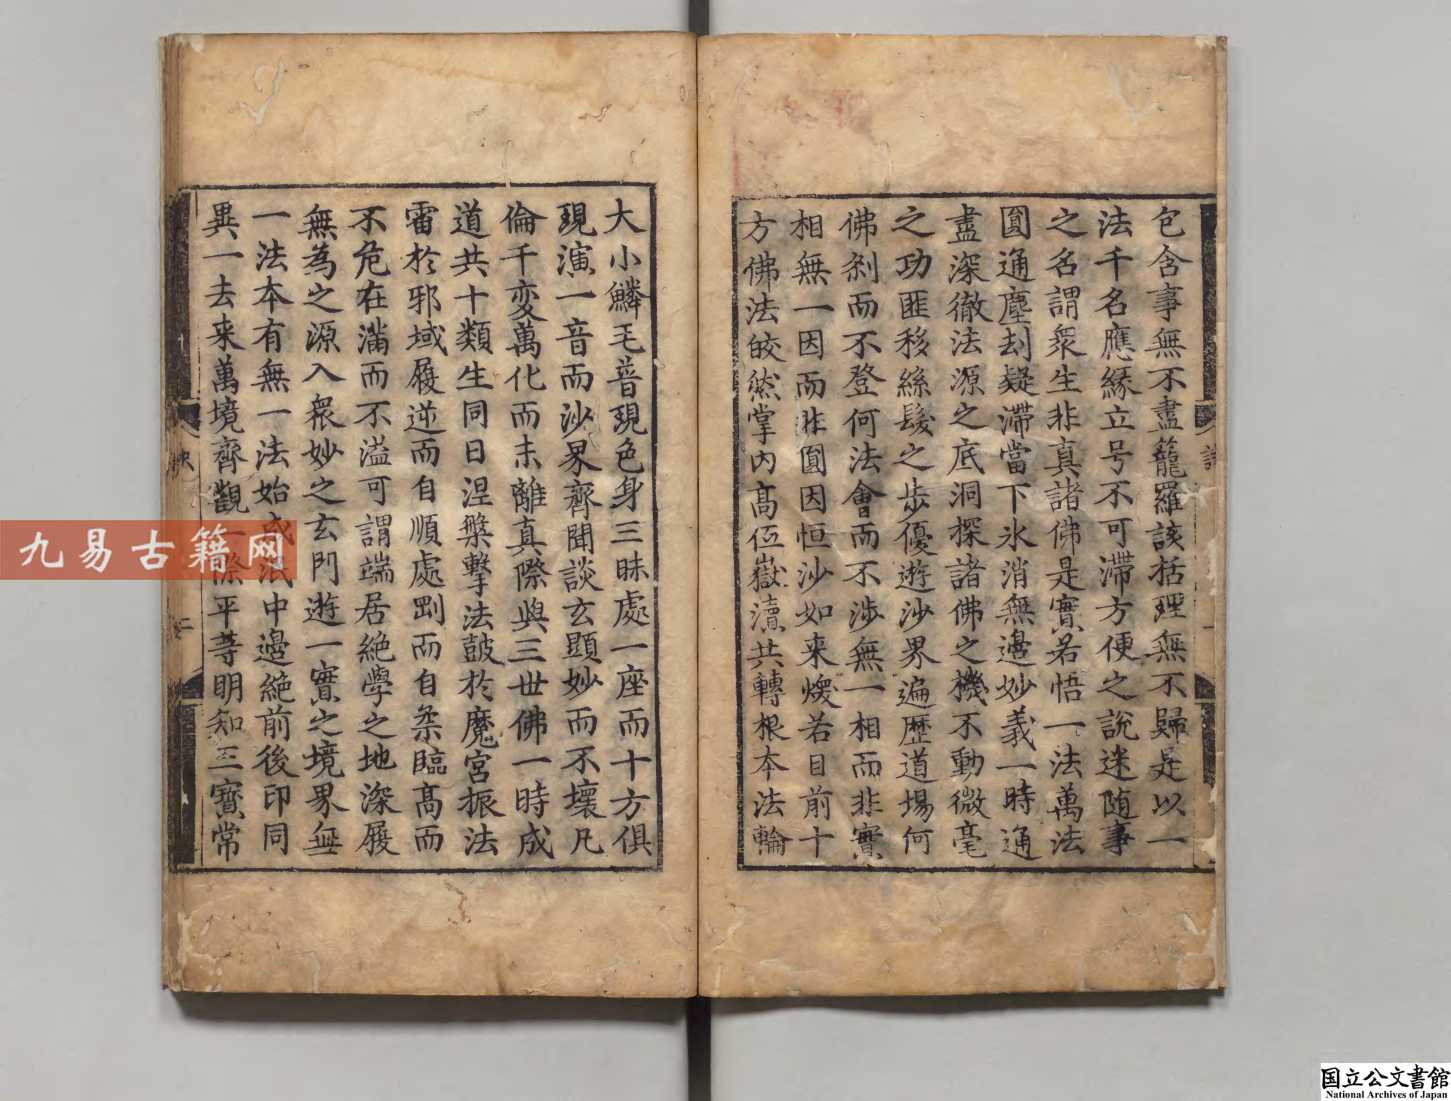 包含事無不盡籠羅該括理無不歸是以一
法千名應緣立号不可滯方便之說迷随事
之名謂衆生非真諸佛是實若悟一法萬法
圓通塵刼疑滯當下氷消無邊妙義一時通
盡深徹法源之底洞探諸佛之機不動微毫
之功匪移絲髮之步優遊沙界遍歷道場何
佛刹而不登何法會而不涉無一相而非實
相無一因而非圓因恒沙如来煥若目前十
方佛法皎然掌内髙低嶽瀆共轉根本法輪
大小鱗毛普現色身三昧處一座而十方俱
現演一音而沙界齊聞談玄顯妙而不壞凡
倫千変萬化而未離真際與三世佛一時成
道共十類生同日涅槃擊法皷於魔宮振法
雷於邪域履逆而自順處剛而自柔臨髙而
不危在滿而不溢可謂端居絕學之地深履
無為之源入衆妙之玄門遊一實之境界無
一法本有無一法始成泯中邊絕前後印同
異一去来萬境齊觀一際平等明知三寳常
九易古籍网
国立公文書館
National Archives of Japan